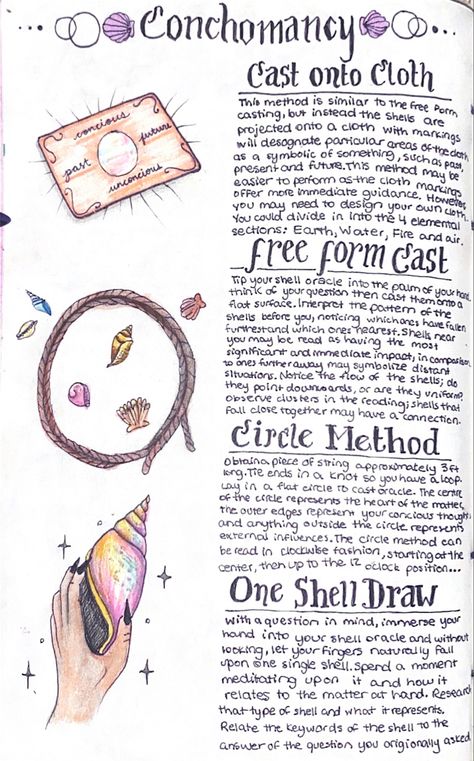 Conchomancy
concious
past
future
unconcious
Cast onto Cloth
This method is similar to the free form
casting, but instead the shells are
projected onto a cloth with markings
will desognate particular areas of the cloth
as a symbolic of something, such as past,
present and future. This method may be
easier to perform as the cloth markings
offer more immediate guidance. However
you may need to design your own cloth.
You could divide in into the 4 elemental
sections: Earth, Water, Fire and air.
Free Form Cast
Tip your shell oracle into the palm of your hand,
think of your question then cast them onto a
flat surface. Interpret the pattern of the
shells before you, noticing which ones have fallen
furthest and which ones nearest. Shells near
you may be read as having the most
significant and immediate impact, in comparison
to ones further away may symbolize distant
situations. Notice the flow of the shells; do
they point downwards, or are they uniform?
observe clusters in the reading; shells that
fall close together may have a connection.
Circle Method
Obtain a piece of string approximately 3ft
long. Tie ends in a knot so you have a loop.
Lay in a flat circle to cast oracle. The centre
of the circle represents the heart of the matter,
the outer edges represent your concious thought
and anything outside the circle represents
external influences. The circle method can
be read in clockwise fashion, starting at the
center, then up to the 12 oclock position...
One Shell Draw
With a question in mind, immerse your
hand into your shell oracle and without
looking, let your fingers naturally fall
upon one single shell. Spend a moment
meditating upon it and how it
relates to the matter at hand. Research
that type of shell and what it represents.
Relate the keywords of the shell to the
answer of the question you origionally asked